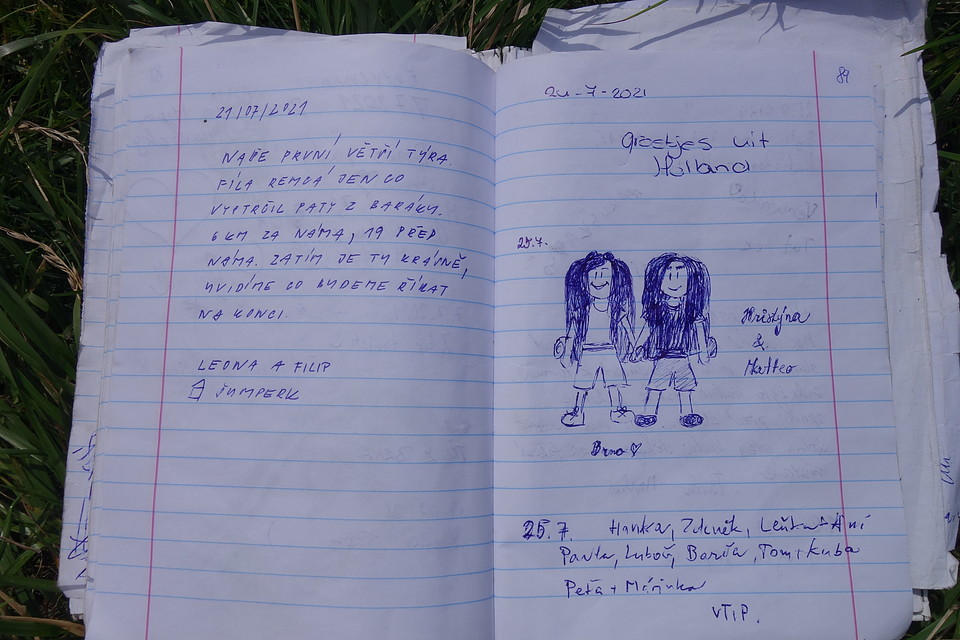 21/07/2021
NAŠE PRVNÍ VĚTŠÍ TÚRA.
FÍLA REMCÁ JEN CO
VYSTRČIL PATY Z BARÁKU.
6 KM ZA NÁMA, 19 PŘED
NÁMA. ZATÍM JE TU KRÁSNĚ,
UVIDÍME CO BUDEME ŘÍKAT
NA KONCI.
LEONA A FILIP
ŠUMPERK
84
24-7-2021
Groetjes uit
Holland
25.7.
Kristýna
&
Matteo
Brno ♡
25.7. Hanka, Zdeněk, Lenka +
Pavla, Luboš, Barča, Tom + Kuba
Peťa + Májinka
VTIP.